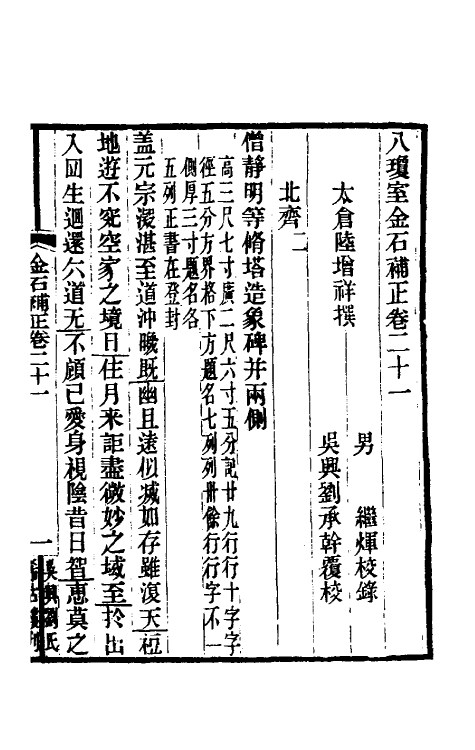 八瓊室金石補正卷二十一
太倉陸增祥撰
男　繼煇校錄
吳興劉承幹覆校
北齊二
僧靜明等脩塔造象碑并兩側
高三尺七寸廣二尺六寸五分記廿九行行十字字
徑五分方界格下方題名七列列卅餘行行字不一
側厚三寸題名各
五列正書在登封
盖元宗湛至道沖㬢既幽且遠似减如存雖復天
地遊不究空家之境日住月来詎盡微妙之域至扵出
入回生迴還六道无不顔己愛身視陰昔日智惠莫之
金石補正卷二十一
一
吳興劉氏